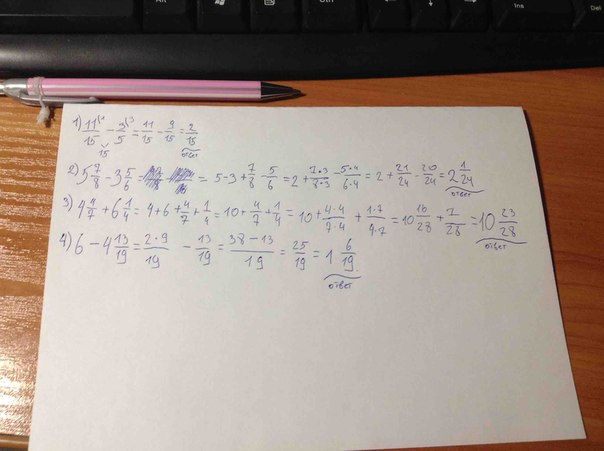 Alt
Ins
Del
1) 11/15 - 3/5 = 11/15 - 9/15 = 2/15
15
ответ
2) 5 7/8 - 3 5/6 = = 5-3+7/8-5/6 = 2+7•3/8•3 -5•4/6•4 = 2+21/24-20/24 = 2 1/24
ответ
3) 4 4/7 + 6 1/4 = 4+6+4/7+1/4 = 10+4/7+1/4 = 10+4•4/7•4 + 1•7/4•7 = 10 16/28 + 7/28 = 10 23/28
ответ
4) 6 - 4 13/19 = 2•9/19 - 13/19 = 38-13/19 = 25/19 = 1 6/19
ответ